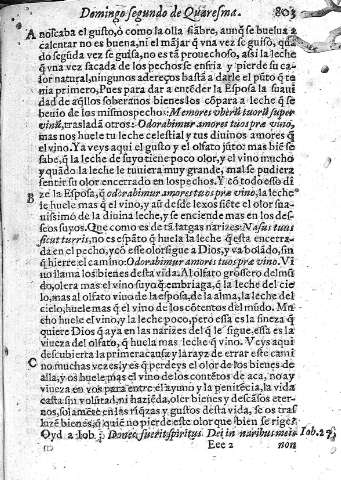 Domingo segundo de Quaresma. 803
A noscaba el gusto, ò como la olla fiãbre, aunq̃ se buelua a
calentar no es buena, ni el mãjar q̃ vna vez se guisò, quã
do segũda vez se guisa, no es tã prouechoso, assi la leche
q̃ vna vez sacada de los pechos se enfria y pierde su ca
lor natural, ningunos adereços bastã a darle el pũto q̃ te
nia primero, Pues para dar a entẽder la Esposa la suaui
dad de aq̃llos soberanos bienes los cõpara a leche q̃ se
beuio de los mismos pechos: Memores vberũ tuorũ super
vinũ, trasladà otros: Odorabimur amores tuos præ vino,
mas nos huele tu leche celestial y tus diuinos amores q̃
el vino. Ya veys aqui el gusto y el olfato jũto: mas biẽ se
sabe, q̃ la leche de suyo tiene poco olor, y el vino mucho
y quãdo la leche le tuuiera muy grande, mal se pudiera
sentir su olor encerrado en los pechos. Y cõ todo esso di
B ze la Esposa, q̃ odorabimur amores tuos præ vino, la leche
le huele mas q̃ el vino, y aũ desde lexos siẽte el olor sua
uissimo de la diuina leche, y se enciende mas en los des-
seos suyos. Que como es de tã largas narizes: Nasus tuus
sicut turris, no es espãto q̃ huela la leche q̃ esta encerra-
da en el pecho, y cõ esse olor sigue a Dios, y va bolãdo, sin
q̃ hierre el camino: Odorabimur amores tuos præ vino. Vi
no llama los bienes desta vida. Al olfato grossero del mũ
do, olera mas el vino suyo q̃ embriaga, q̃ la leche del cie
lo, mas al olfato viuo de la esposa, de al alma, la leche del
cielo, huele mas q̃ el vino de los cõtentos del mũdo. Mu
cho huele el vino, y la leche poco, pero essa es la fineza q̃
quiere Dios q̃ aya en las narizes del q̃ le sigue. essa es la
viueza del olfato, q̃ huela mas leche q̃ vino. Veys aqui
descubierta la primera causa y la rayz de errar este cami
C no muchas vezes, y es q̃ perdeys el olor de los bienes de
alla, y os huele mas el vino de los contẽtos de aca, no ay
viueza en vos para entre el ayuno y la penitẽcia, la vida
casta sin volũtad, ni haziẽda, oler bienes y descãsos eter-
nos, solamẽte en las riq̃zas y gustos desta vida, se os tras
luze bienes, q̃ quiẽ no pierde este olor que biẽn se rige?
Oyd a Iob. Donec fuerit spiritus Dei in naribus meis Iob. 27.
Eee 2 non